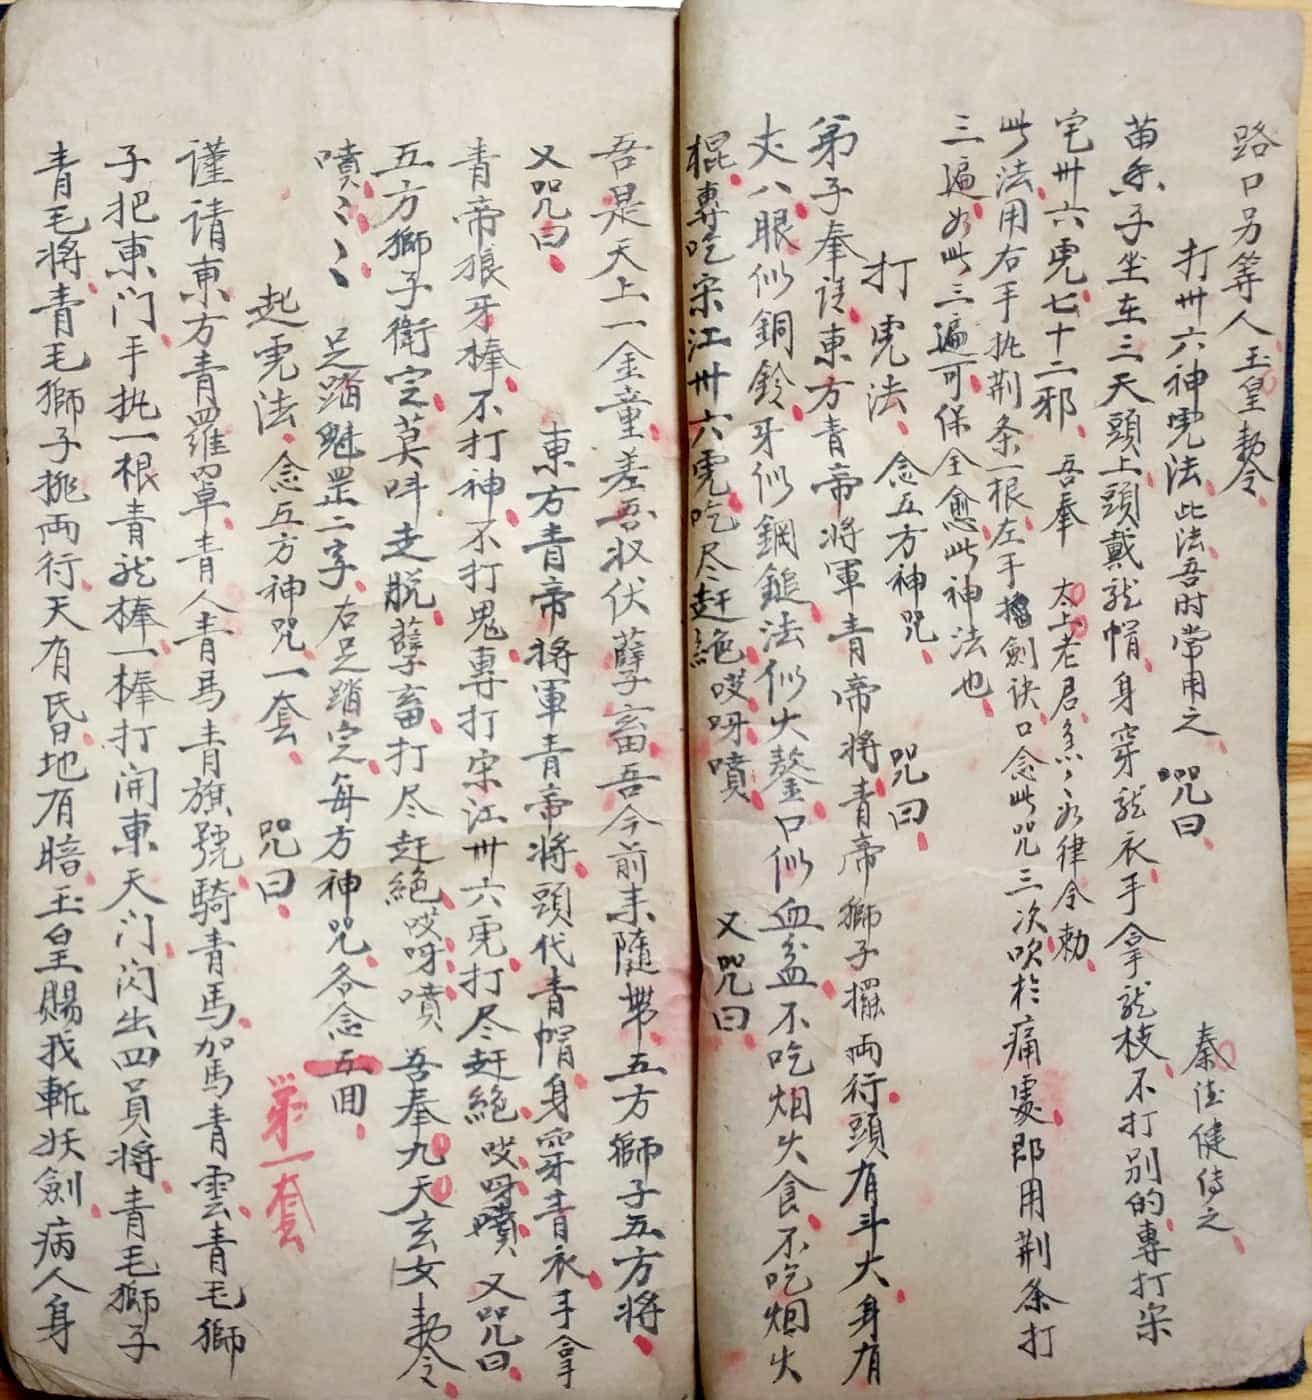 路口另等人 玉皇勅令
打卅六神虎法 此法吾时常用之 咒曰 秦德健传之
苗子坐在三天頭上頭戴龙帽身穿龙衣手拿龙枝不打别的專打宋
宅卅六虎七十二邪 吾奉 太上老君急〻如律令勅
此法用右手执荆条一根左手剑诀口念此咒三次吹於痛處即用荆条打
三遍如此三遍可保全愈此神法也
打虎法 念五方神咒 咒曰
弟子奉请東方青帝將軍青帝將青帝獅子擺両行頭有斗大身有
丈八眼似銅鈴牙似鋼鎚法似火鏊口似血盆不吃烟火食不吃烟火
棍專吃宋江卅六虎吃尽赶絶哎呀噴 又咒曰
吾是天上一金童差吾收伏孽畜吾今前来隨帶五方獅子五方將
又咒曰 東方青帝將軍青帝將頭代青帽身穿青衣手拿
青帝狼牙棒不打神不打鬼專打宋江卅六虎打尽赶絶哎呀噴 又咒曰
五方獅子衛定莫叫走脱孽畜打尽赶絶哎呀噴 吾奉九天玄女勅令
噴〻〻 足踏魁罡二字右足踏定每方神咒各念五回
起虎法 念五方神咒一套 咒曰 第一套
谨请東方青羅罩青人青馬青旗號騎青馬加馬青雲青毛獅
子把東门手执一根青龙棒一棒打開東天门闪出四員將青毛獅子
青毛將青毛獅子排両行天有昏地有暗玉皇賜我斬妖劍病人身